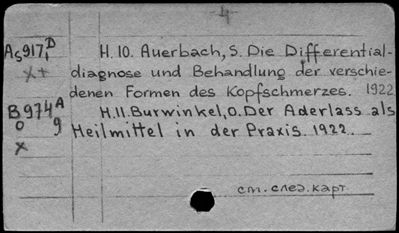 -4-
As917,D H.10. Auerbach, S. Die Differential-
x+ diagnose und Behandlung der verschie-
denen Formen des Kopfschmerzes. 1922
B974A H.11. Burwinkel, O. Der Aderlass als
o 9 Heilmittel in der Praxis. 1922.
x
см. след. карт